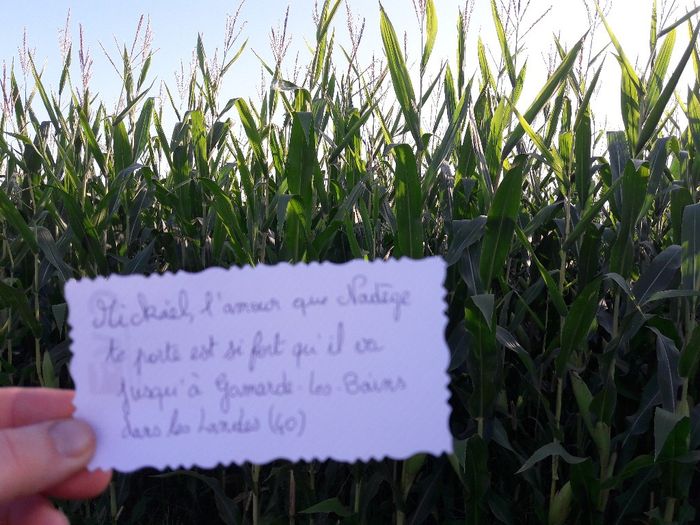 Mickaël, l'amour que Nadège
te porte est si fort qu'il va
jusqu'à Gamarde-les-Bains
dans les Landes (40)